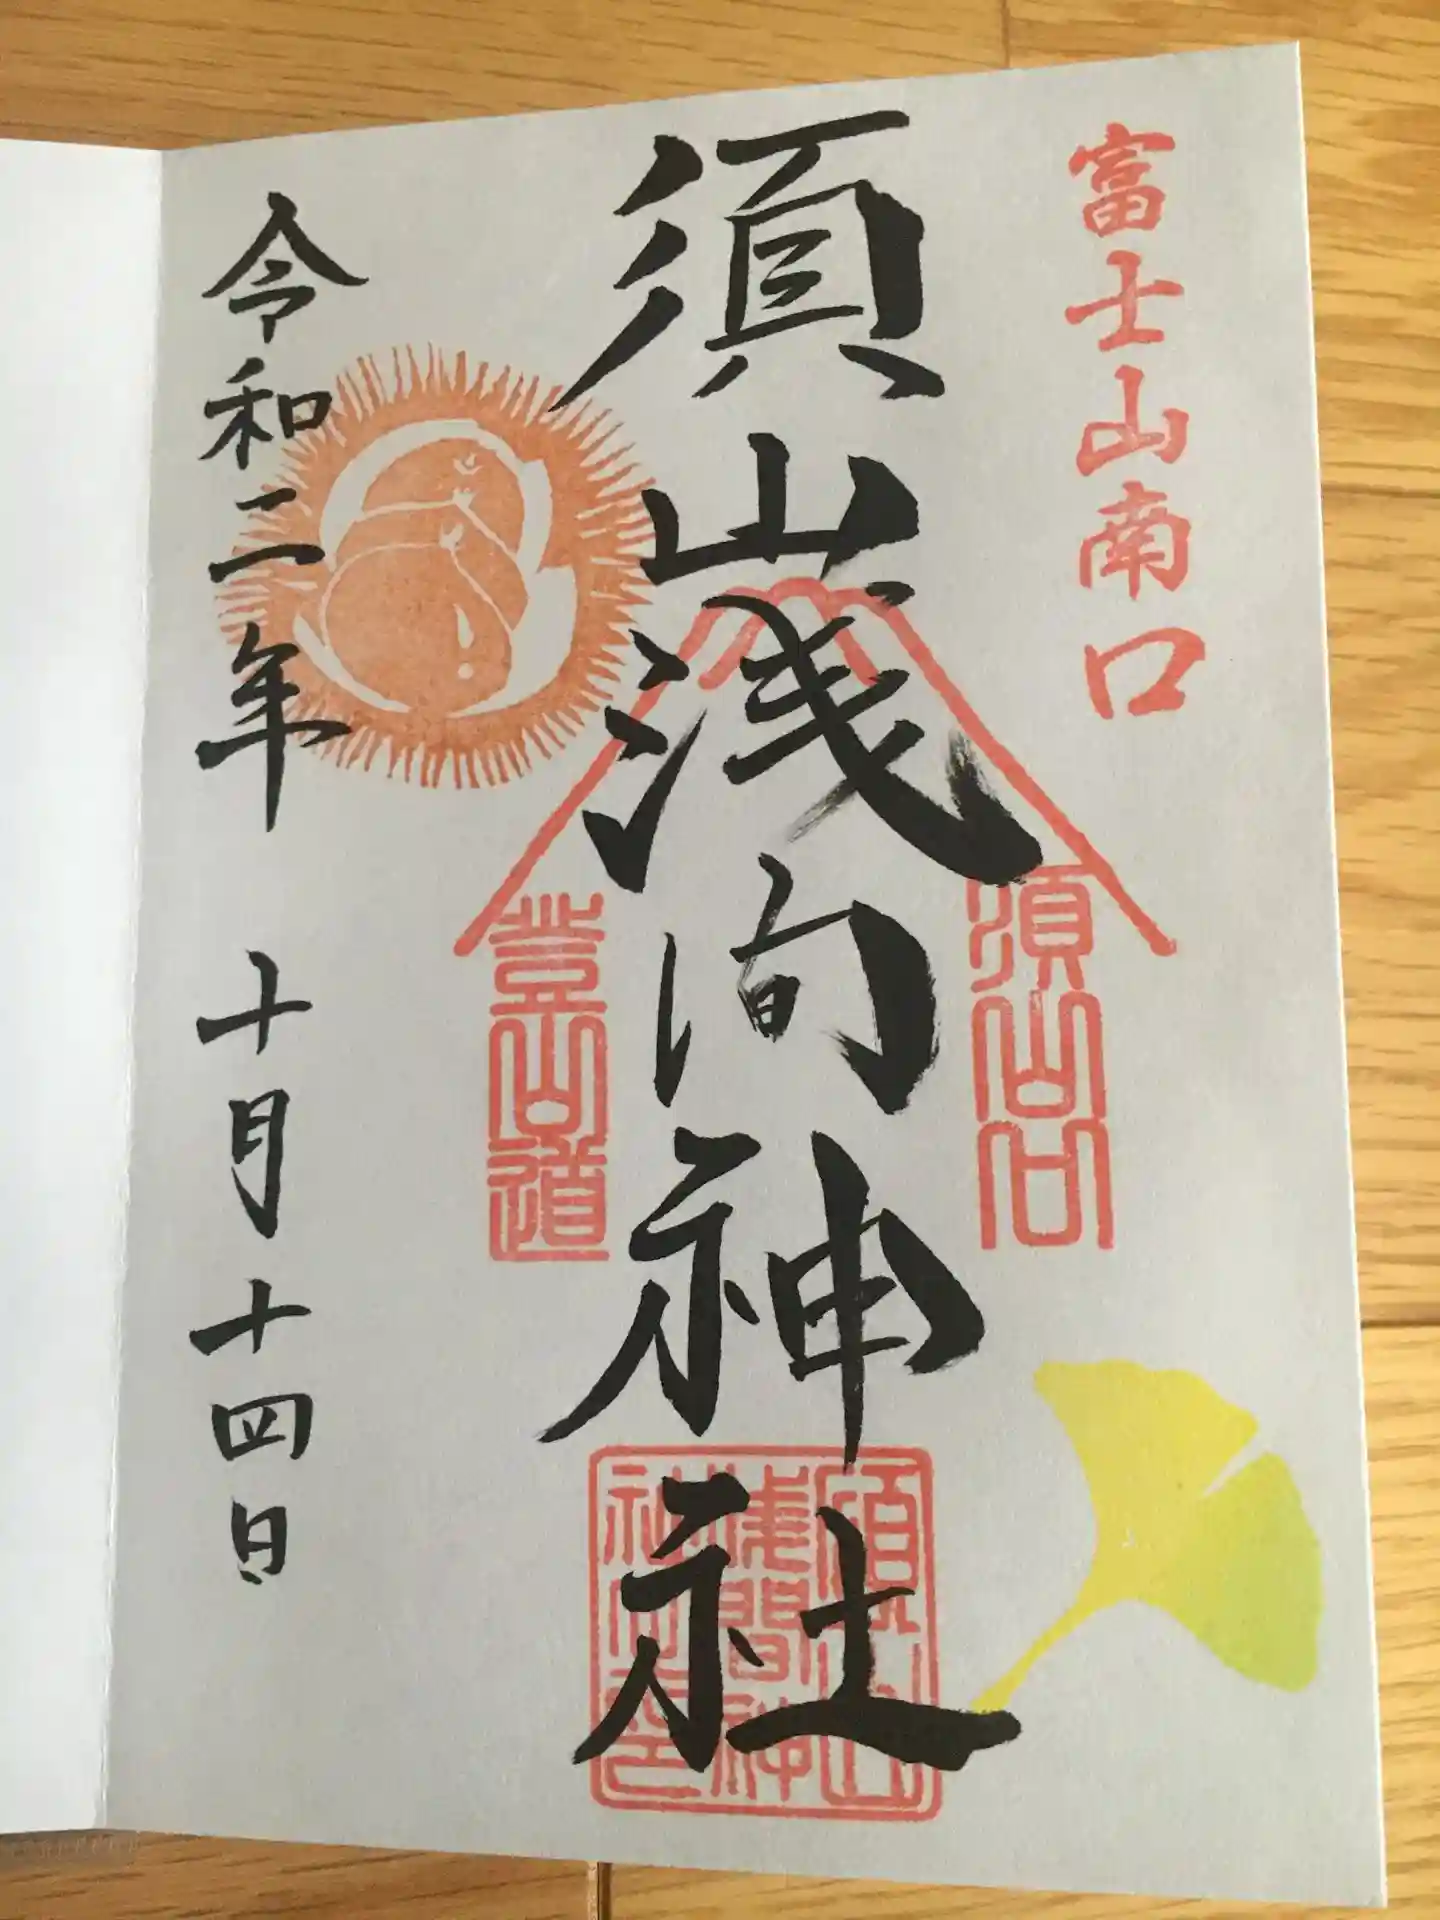 富士山南口
須山浅间神社
須山口
登山道
須山浅間神社之印
令和二年 十月十四日